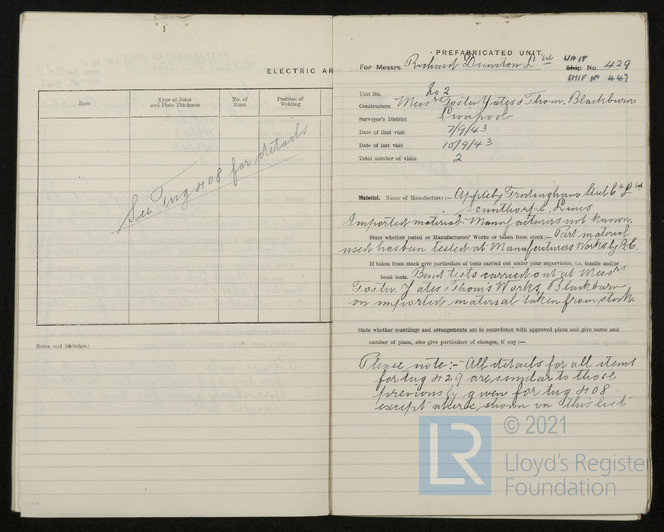 ELECTRIC AR
Item
Type of Joint and Plate Thickness
No. of Runs
Position of Welding
See Tug 408 for details
Notes and Sketches:
PREFABRICATED UNIT.
For Messrs. Richard Dunston Ltd Unit Ship No. 429
SHIP No 447
Unit No. No 2
Constructors Messrs Foster Yates & Thom, Blackburn
Surveyor's District Liverpool
Date of first visit 7/9/43
Date of last visit 10/9/43
Total number of visits 2
Material. Name of Manufacturer:— Appleby Frodingham Steel Co Ltd
Scunthorpe, Lincs
Imported material:- Manufactures not known.
State whether tested at Manufacturers' Works or taken from stock:— Part material
used has been tested at Manufactures Works by B.C.
If taken from stock give particulars of tests carried out under your supervision, i.e. tensile and/or
bend tests. Bend tests carried out at Messrs
Foster, Yates & Thom's Works, Blackburn
on imported material taken from stock
State whether scantlings and arrangements are in accordance with approved plans and give name and
number of plans, also give particulars of changes, if any :—
Please note:- All details for all items
for tug 429 are similar to those
previously given for tug 408
except where shown on this list
LR
© 2021
Lloyd's Register
Foundation